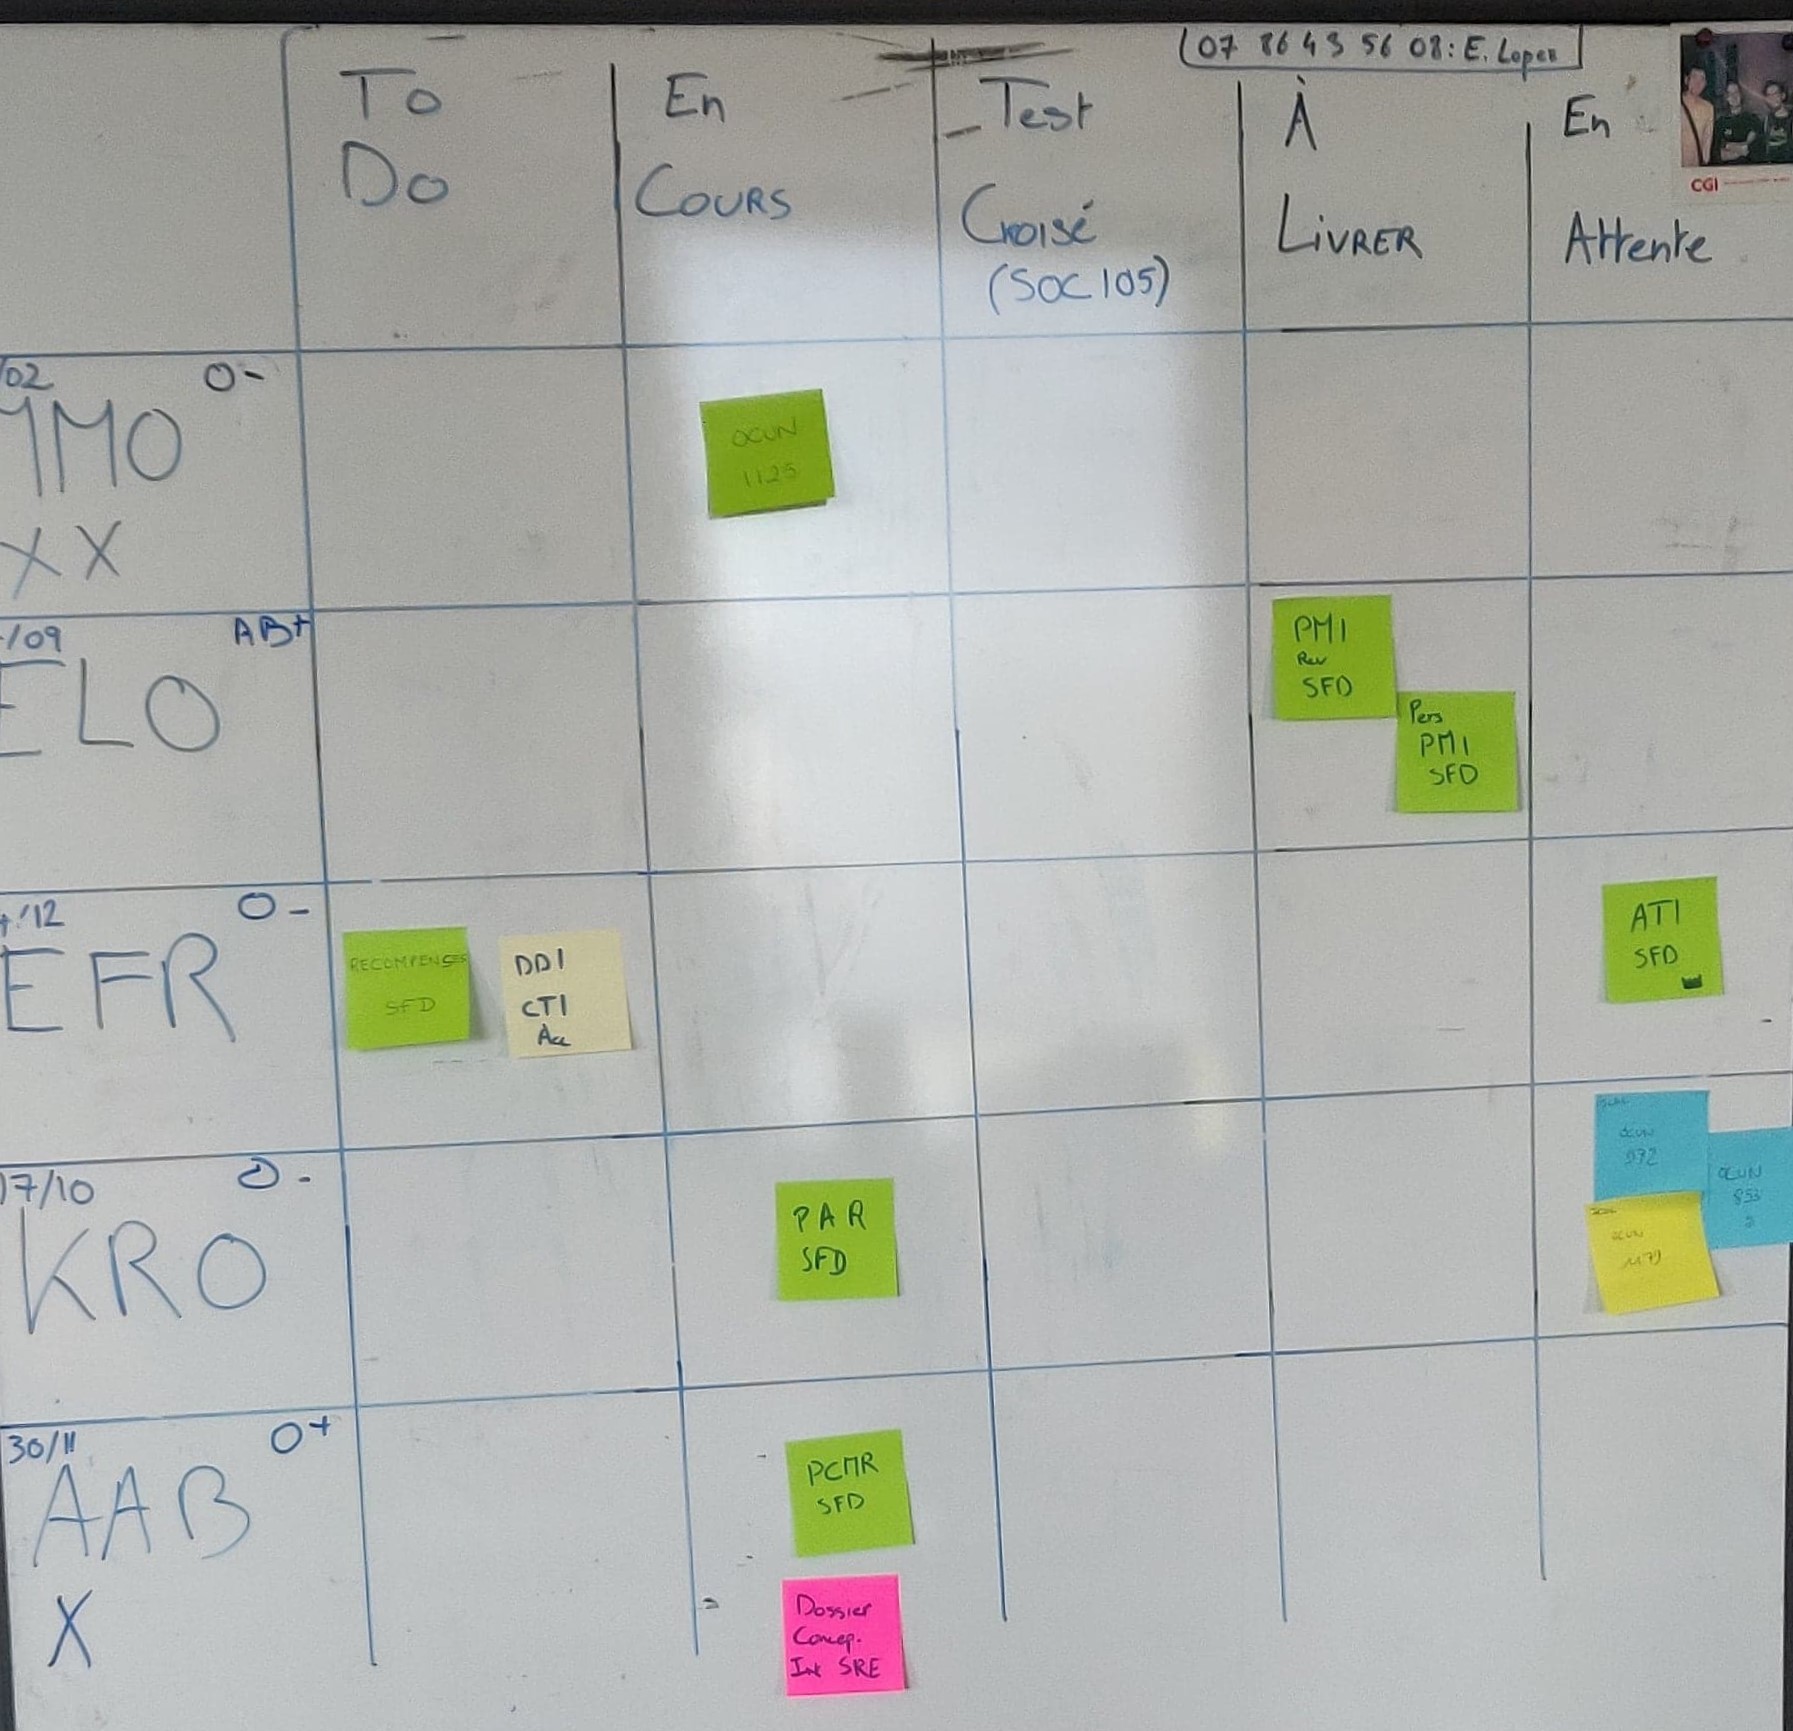 07 86 43 56 08: E. Lopez
To
Do
En
COURS
Test
Croisé
(SOC 105)
À
LIVRER
En
Attente
CGI
/02 O-
MMO
XX
OCUN
1125
/09 AB+
ELO
PMI
Rev
SFD
Pers
PMI
SFD
/12 O-
EFR
RECOMPENSES
SFD
DDI
CTI
ATI
SFD
17/10 O-
KRO
PAR
SFD
OCUN
972
OCUN
853
OCUN
1179
30/11 O+
AAB
X
PCMR
SFD
Dossier
Concep.
Int SRE